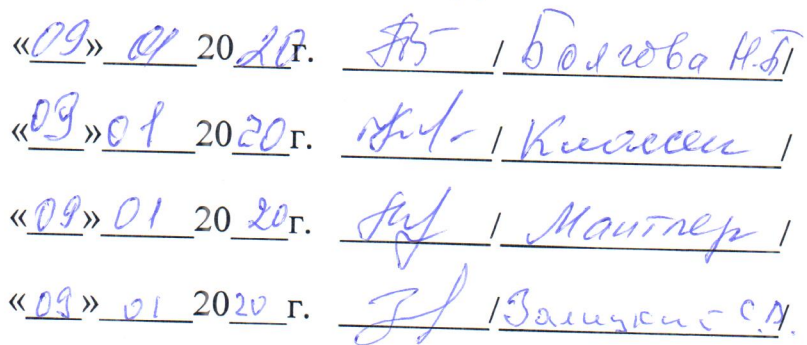 «09» 01 2020г. / Болгова Н.Б/
«09» 01 2020г. / Классен /
«09» 01 2020г. / Мантлер /
«09» 01 2020 г. / Залицкий С.А./